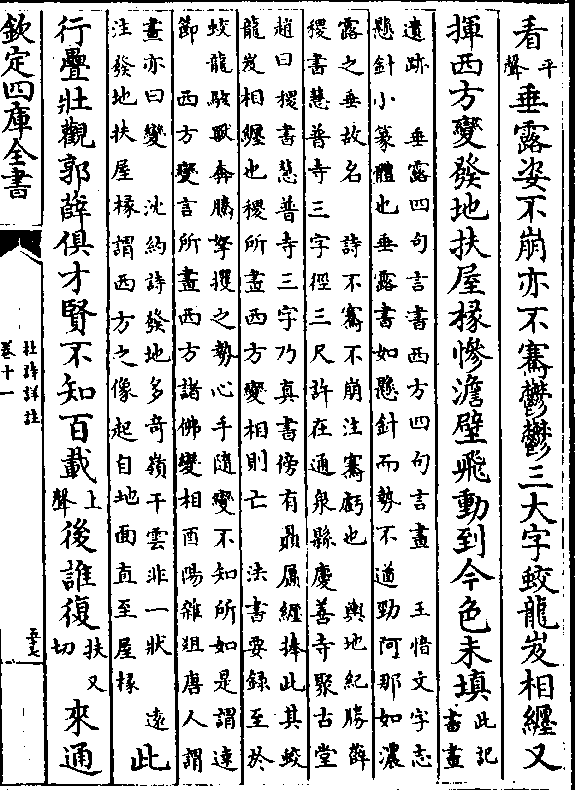 看平聲垂露姿不崩亦不騫鬱鬱三大字蛟龍岌相纏又
揮西方變發地扶屋椽慘澹壁飛動到今色未填此記書畫
遺跡 垂露四句言書西方四句言畫 王愔文字志
懸針小篆體也垂露書如懸針而勢不遒勁阿那如濃
露之垂故名 詩不騫不崩注騫虧也 輿地紀勝薛
稷書慧普寺三字徑三尺許在通泉縣慶善寺聚古堂
趙曰稷書慧普寺三字乃真書傍有贔屭纏捧此其蛟
龍岌相纏也稷所畫西方變相則亡 法書要錄至於
蛟龍駭獸奔騰拏攫之勢心手隨變不知所如是謂達
節 西方變言所畫西方諸佛變相酉陽雜俎唐人謂
畫亦曰變 沈約詩發地多奇嶺干雲非一狀 遠
注發地扶屋椽謂西方之像起自地面直至屋椽 此
行疊壯觀郭薛俱才賢不知百載上聲後誰復扶又切來通
欽定四庫全書
杜詩詳註
卷十一